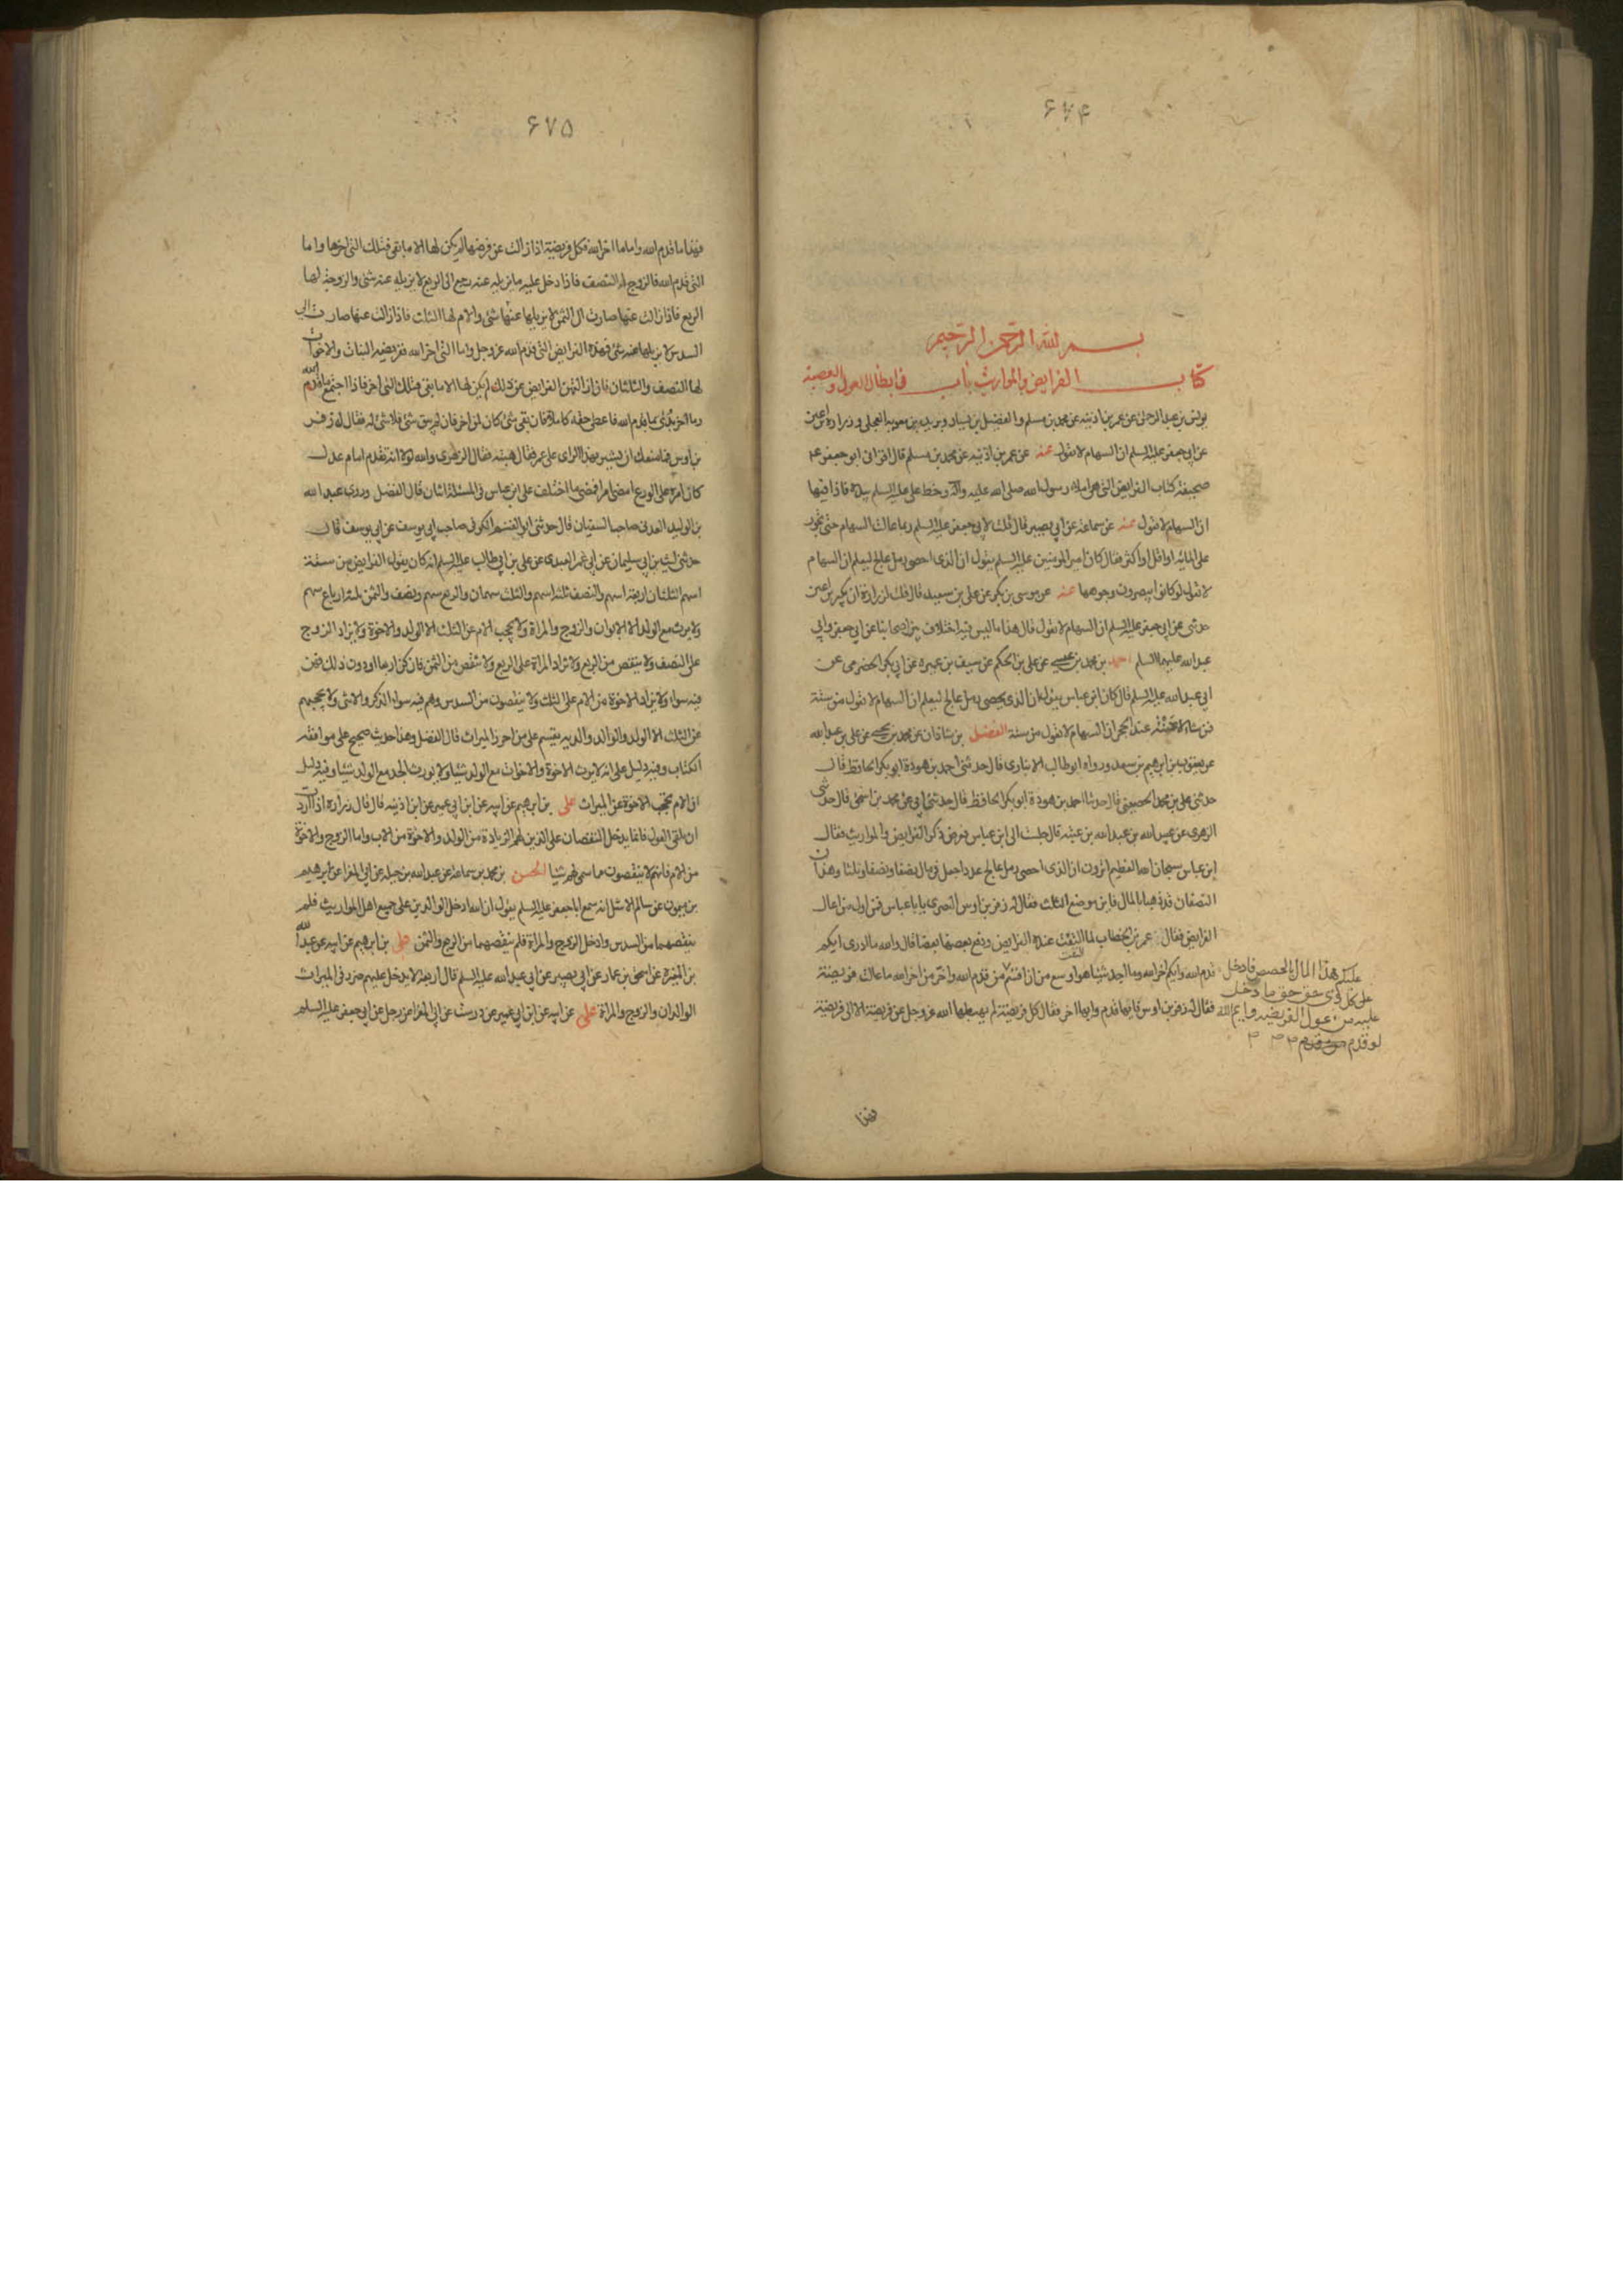 ۶۷۴
بسم الله الرحمن الرحیم
کتاب الفرایض والمواریث باب فی ابطال العول والعصبة
یونس بن عبد الرحمن عن عمر بن اذینه عن محمد بن مسلم والفضیل بن یسار وبرید بن معویه العجلی وزرارة بن اعین
عن ابی جعفر علیه السلم ان السهام لا تعول عنه عن عمر بن اذینه عن محمد بن مسلم قال اقرانی ابو جعفر عم
صحیفة کتاب الفرایض التی هی املاء رسول الله صلی الله علیه وآله وخط علی علیه السلم بیده فاذا فیها
ان السهام لا تعول عنه عن سماعة عن ابی بصیر قال قلت لابی جعفر علیه السلم ربما عالت السهام حتی تجوز
علی المایة او اقل او اکثر فقال کان امیر المومنین علیه السلم یقول ان الذی احصی رمل عالج لیعلم ان السهام
لا تعول لو کانوا یبصرون وجوهها عنه عن موسی بن بکر عن علی بن سعید قال قلت لزرارة ان بکیر بن اعین
حدثنی عن ابی جعفر علیه السلم ان السهام لا تعول قال هذا ما لیس فیه اختلاف بین اصحابنا عن ابی جعفر وابی
عبد الله علیهما السلم احمد بن محمد بن عیسی عن علی بن الحکم عن سیف بن عمیره عن ابی بکر الحضرمی عن
ابی عبد الله علیه السلم قال کان ابن عباس یقول ان الذی یحصی رمل عالج لیعلم ان السهام لا تعول من ستة
فمن شاء لاعنته عند الحجر ان السهام لا تعول من ستة الفضل بن شاذان عن محمد بن یحیی عن علی بن عبد الله
عن یعقوب بن ابرهیم بن سعد ورواه ابو طالب الانباری قال حدثنی احمد بن هوذة ابو بکر الحافظ قال
حدثنی علی بن محمد الحصینی قال حدثنا احمد بن هوذة ابو بکر الحافظ قال حدثنی ابی عن محمد بن اسحق قال حدثنی
الزهری عن عبید الله بن عبد الله بن عتبه قال جلست الی ابن عباس فعرض ذکر الفرایض والمواریث فقال
ابن عباس سبحان الله العظیم اترون ان الذی احصی رمل عالج عددا جعل فی مال نصفا ونصفا وثلثا وهذان
النصفان قد ذهبا بالمال فاین موضع الثلث فقال له زفر بن اوس البصری یا با عباس فمن اول من اعال
الفرایض فقال عمر بن الخطاب لما التفت عنده الفرایض ودفع بعضها بعضا قال والله ما ادری ایکم
قدم الله وایکم اخر الله وما اجد شیئا هو اوسع من ان اقسم من قدم الله واخر من اخر الله ما عالت فریضة
فقال له زفر بن اوس فایها قدم وایها اخر فقال کل فریضة لم یهبطها الله عز وجل عن فریضة الا الی فریضة
علیکم هذا المال بالحصص فادخل
علی کل ذی حق حق ما دخل
علیه من عول الفریضه وایم الله
لو قدم
فهذا
۶۷۵
فهذا ما قدم الله واما ما اخر الله فکل فریضة اذا زالت عن فرضها لم یکن لها الا ما بقی فتلک التی اخرها واما
التی قدم الله فالزوج له النصف فاذا دخل علیه ما یزیله عنه رجع الی الربع لا یزیله عنه شئ والزوجة لها
الربع فاذا زالت عنها صارت الی الثمن لا یزیلها عنها شئ والام لها الثلث فاذا زالت عنها صارت الی
السدس لا یزیلها عنه شئ فهذه الفرایض التی قدم الله عز وجل واما التی اخر الله ففریضه البنات والاخوات
لها النصف والثلثان فاذا ازالتهن الفرایض عن ذلک لم یکن لها الا ما بقی فتلک التی اخر فاذا اجتمع ما قدم الله
وما اخر بدئ بما قدم الله فاعطی حقه کاملا فان بقی شئ کان لمن اخر فان لم یبق شئ فلا شئ له فقال له زفر
بن اوس فما منعک ان تشیر بهذا الرای علی عمر فقال هیبته فقال الزهری والله لولا انه تقدم امام عدل
کان امره علی الورع امضی امرا فمضی ما اختلف علی ابن عباس فی المسئلة اثنان قال الفضل وروی عبد الله
بن الولید العدنی صاحب السفیان قال حدثنی ابو القسم الکوفی صاحب ابی یوسف عن ابی یوسف قال
حدثنی لیث بن ابی سلیمان عن ابی عمر العبدی عن علی بن ابی طالب علیه السلم انه کان یقول الفرایض من ستة
اسهم الثلثان اربعة اسهم والنصف ثلثة اسهم والثلث سهمان والربع سهم ونصف والثمن ثلثة ارباع سهم
ولا یرث مع الولد الا الابوان والزوج والمراة ولا یحجب الام عن الثلث الا الولد والاخوة ولا یزاد الزوج
علی النصف ولا ینقص من الربع ولا تزاد المراة علی الربع ولا تنقص من الثمن فان کن اربعا او دون ذلک فهن
فیه سواء ولا یزاد الاخوة من الام علی الثلث ولا ینقصون من السدس وهم فیه سواء الذکر والانثی ولا یحجبهم
عن الثلث الا الولد والوالد والدیه یقسم علی من احرز المیراث قال الفضل وهذا حدیث صحیح علی موافقة
الکتاب وفیه دلیل علی انه لا یرث الاخوة والاخوات مع الولد شیئا ولا یورث الجد مع الولد شیئا وفیه دلیل
ان الام تحجب الاخوة عن المیراث علی بن ابرهیم عن ابیه عن ابن ابی عمیر عن ابن اذینه قال قال زراره اذا اردت
ان تلقی العول فانما یدخل النقصان علی الذین لهم الزیادة من الولد والاخوة من الاب واما الزوج والاخوة
من الام فانهم لا ینقصون مما سمی لهم شیئا الحسن بن محمد بن سماعة عن عبد الله بن جبله عن ابی المغرا عن ابرهیم
بن میمون عن سالم الاشل انه سمع ابا جعفر علیه السلم یقول ان الله ادخل الوالدین علی جمیع اهل المواریث فلم
ینقصهما من السدس وادخل الزوج والمراة فلم ینقصهما من الربع والثمن علی بن ابرهیم عن ابیه عن عبد الله
بن المغیره عن اسحق بن عمار عن ابی بصیر عن ابی عبد الله علیه السلم قال اربعة لا یدخل علیهم ضرر فی المیراث
الوالدان والزوج والمراة علی عن ابیه عن ابن ابی عمیر عن درست عن ابی المغرا عن رجل عن ابی جعفر علیه السلم